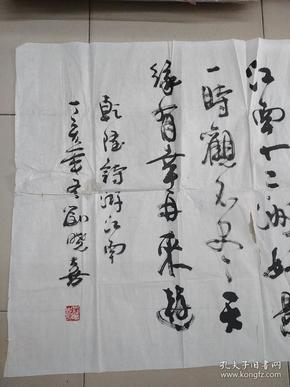 江南十二洲好景
一時觀不尽天
緣有幸再來遊
乾隆詩游江南
丁亥年冬劉曉嘉
孔夫子旧书网